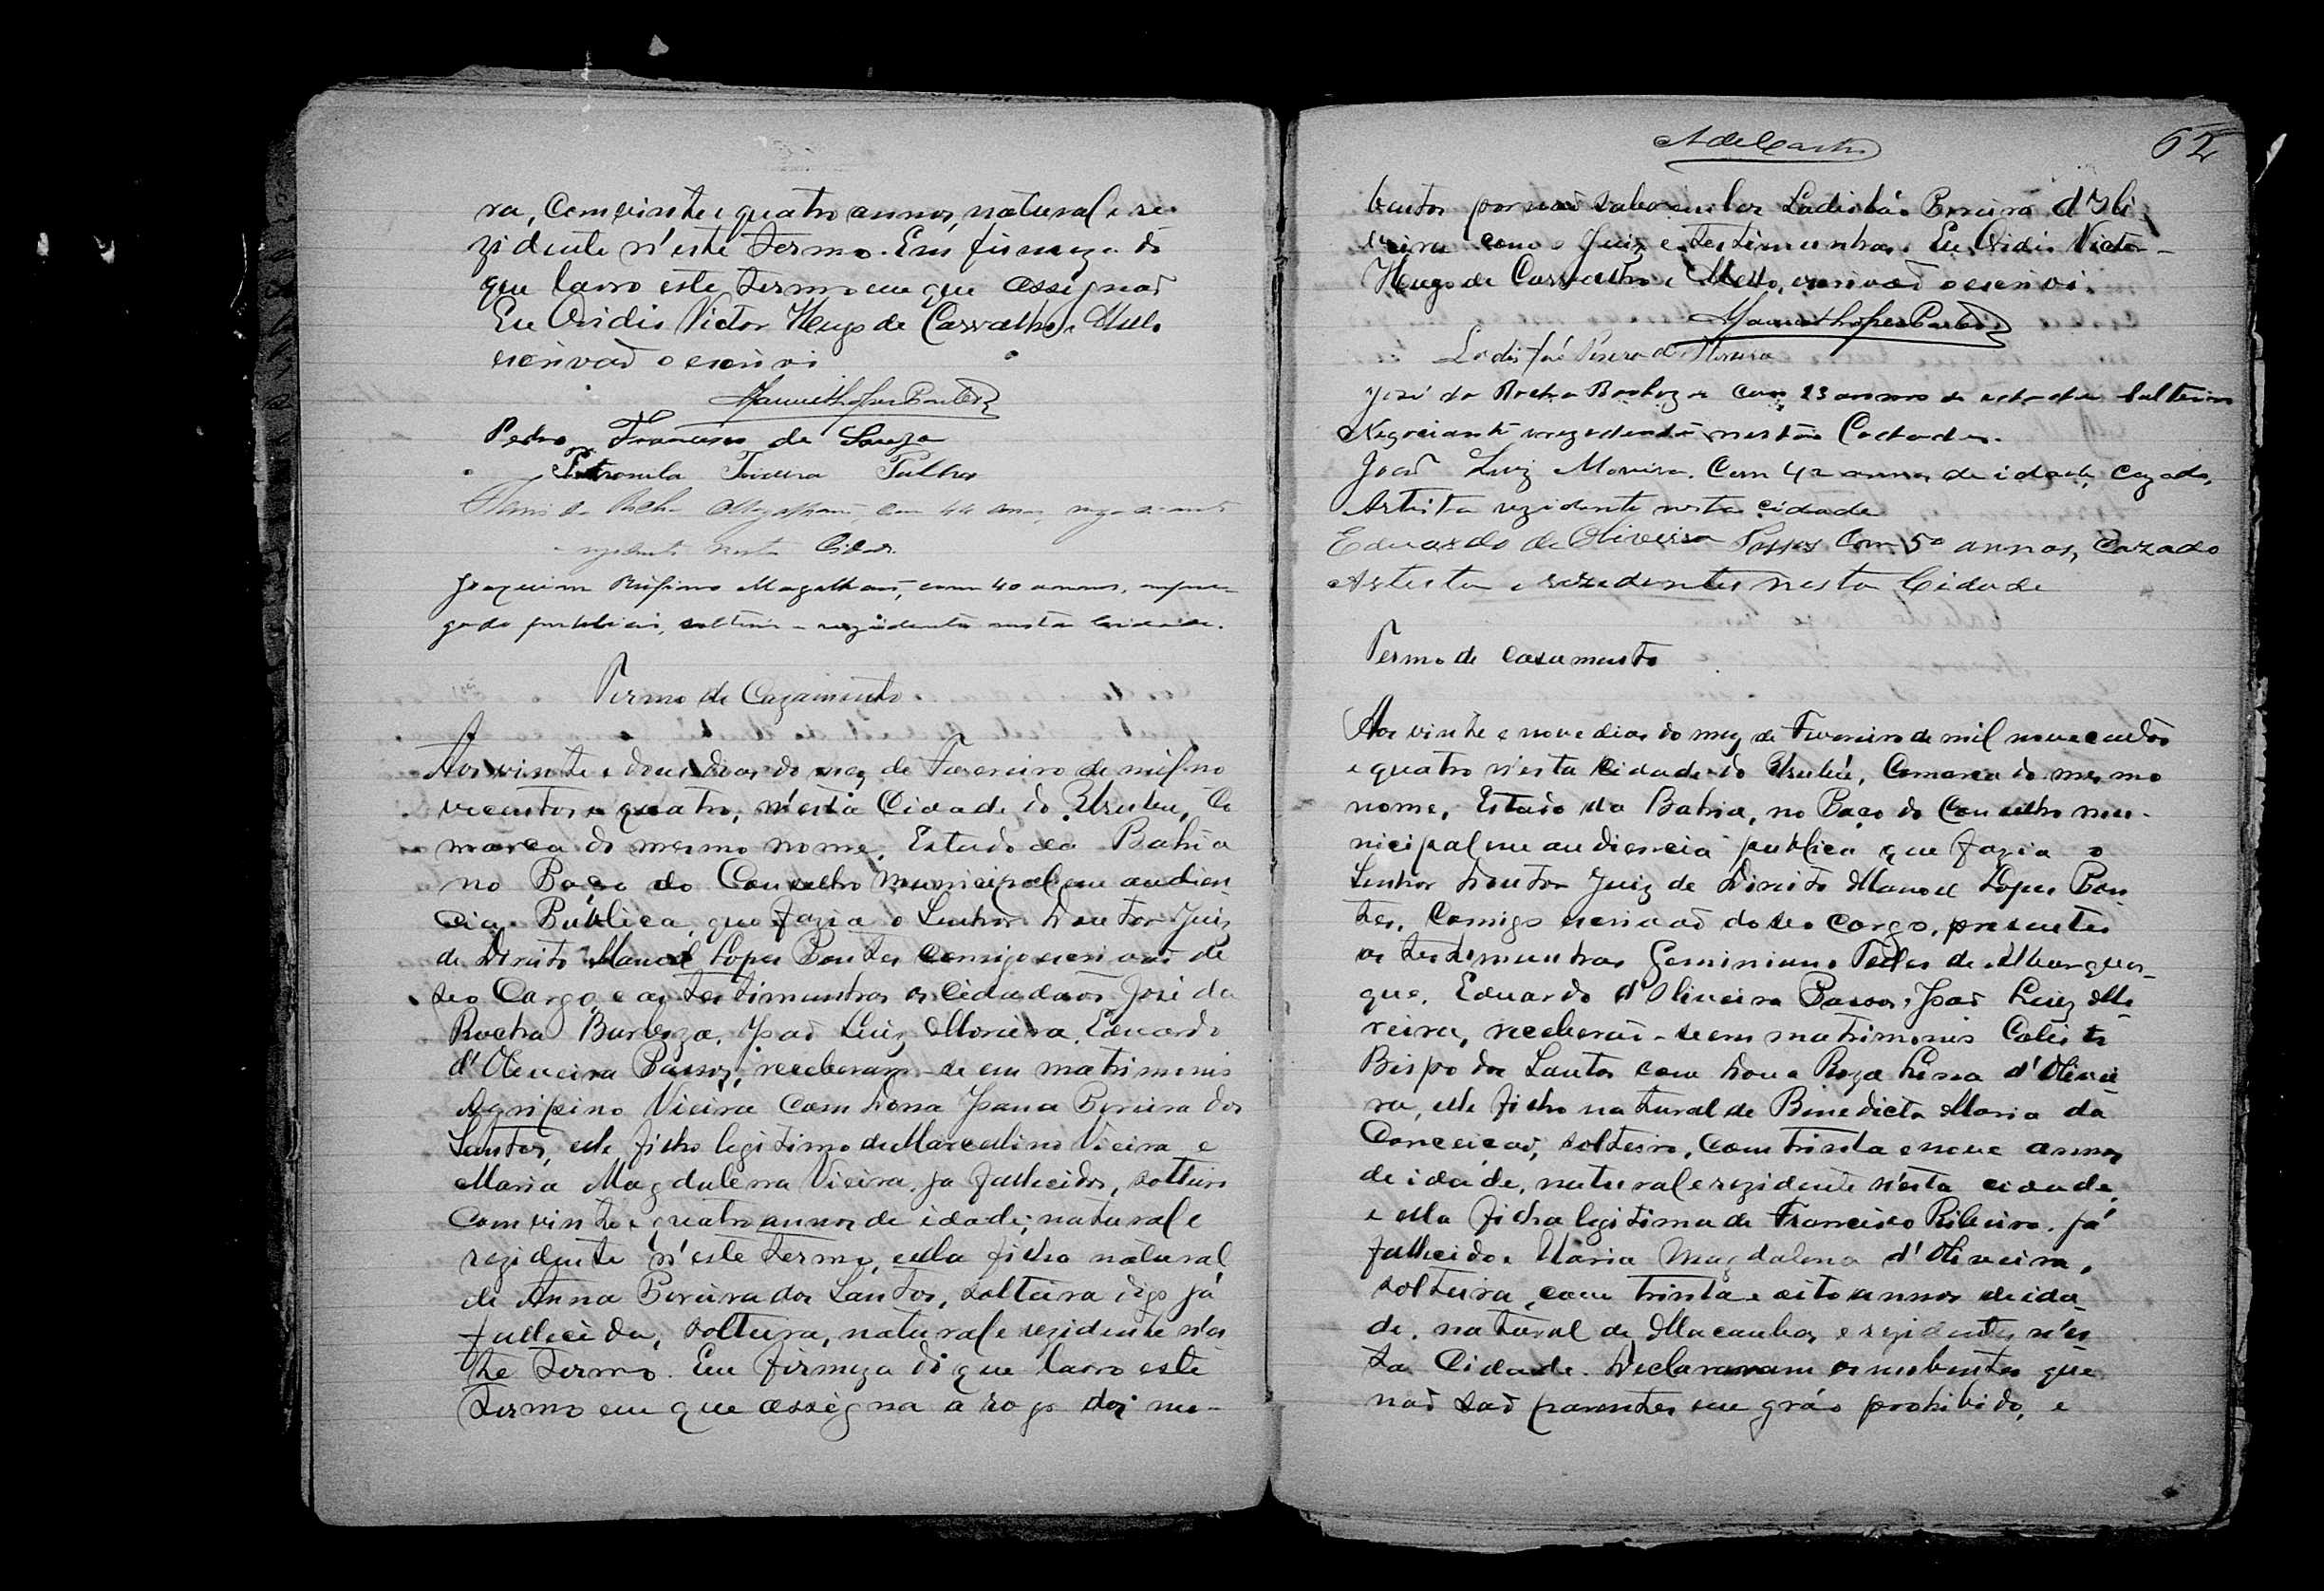 ra, com vinte e quatro annos, natural e re-
zidente n'este termo. Em firmeza do
que lavro este termo em que assignaõ
Eu Ovidio Victor Hugo de Carvalho e Mello
escrivaõ o escrivi
Manoel Lopes Pontes
Pedro Francisco de Souza
Petronila Teixeira
da Rocha Magalhães, com 44 annos, negociante
rezidente nesta Cidade
Joaquim Rufino Magalhães, com 40 annos, empre-
gado publico, solteiro e rezidente nesta cidade.
Termo de Cazamento.
Aos vinte e dous dias do mez de Fevereiro de mil no
vecentos e quatro, n'esta Cidade do Urubu, Co
marca do mesmo nome, Estado da Bahia
no Paço do Conselho Municipal em audien
cia Publica que fazia o Senhor Doutor Juiz
de Direito Manoel Lopes Pontes comigo escrivaõ de
seo Cargo, e as testimunhas os Cidadaõs José da
Rocha Barboza, Joaõ Luiz Moreira, Eduardo
d'Oliveira Passos, receberam-se em matrimonio
Agripino Vieira com Dona Joana Pereira dos
Santos, elle filho legitimo de Marcolino Vieira e
Maria Magdalena Vieira, ja fallecidos, solteiro
com vinte e quatro annos de idade, natural e
rezidente n'este termo, e ella filha natural
de Anna Pereira dos Santos, solteira digo já
fallecida, solteira, natural e rezidente n'es
te termo. Em firmeza do que lavro este
termo em que assigna a rogo dos nu-
A de Castro
62
bentes por naõ saberem ler Ladisláo Pereira d'Oli
veira com o Juiz e testimunhas. Eu Ovidio Victor
Hugo de Carvalho e Mello, escrivaõ o escrivi.
Manoel Lopes Pontes
Pereira de Oliveira
José da Rocha Barboza com 23 annos de idade solteiro
Negociante e rezidente nesta Cidade.
Joaõ Luiz Moreira. Com 42 annos de idade, cazado,
Artista rezidente nesta cidade
Eduardo de Oliveira Passos Com 50 annos, Cazado
Artista e rezidentes nesta Cidade
Termo de casamento
Aos vinte e nove dias do mez de Fevereiro de mil novecentos
e quatro n'esta Cidade do Urubú, Comarca do mesmo
nome, Estado da Bahia, no Paço do Conselho mu-
nicipal em audiencia publica que fazia o
Senhor Doutor Juiz de Direito Manoel Lopes Pon
tes, Comigo escrivaõ do seo cargo, presentes
as testimunhas Geminiano Telles de Albuquer-
que, Eduardo d'Oliveira Passos, Joaõ Luiz Mo
reira, receberaõ-se em matrimonio Calisto
Bispo dos Santos com Dona Roza Lina d'Olivei
ra, elle filho natural de Benedicta Maria da
Conceiçaõ, solteiro, com trinta e nove annos
de idade, natural e rezidente n'esta cidade,
e ella filha legitima de Francisco Ribeiro, já
fallecido e Maria Magdalena d'Oliveira,
solteira, com trinta e oito annos de ida-
de, natural de Macaubas e rezidentes n'es
ta Cidade. Declararam os nubentes que
naõ saõ parentes em gráo prohibido, e